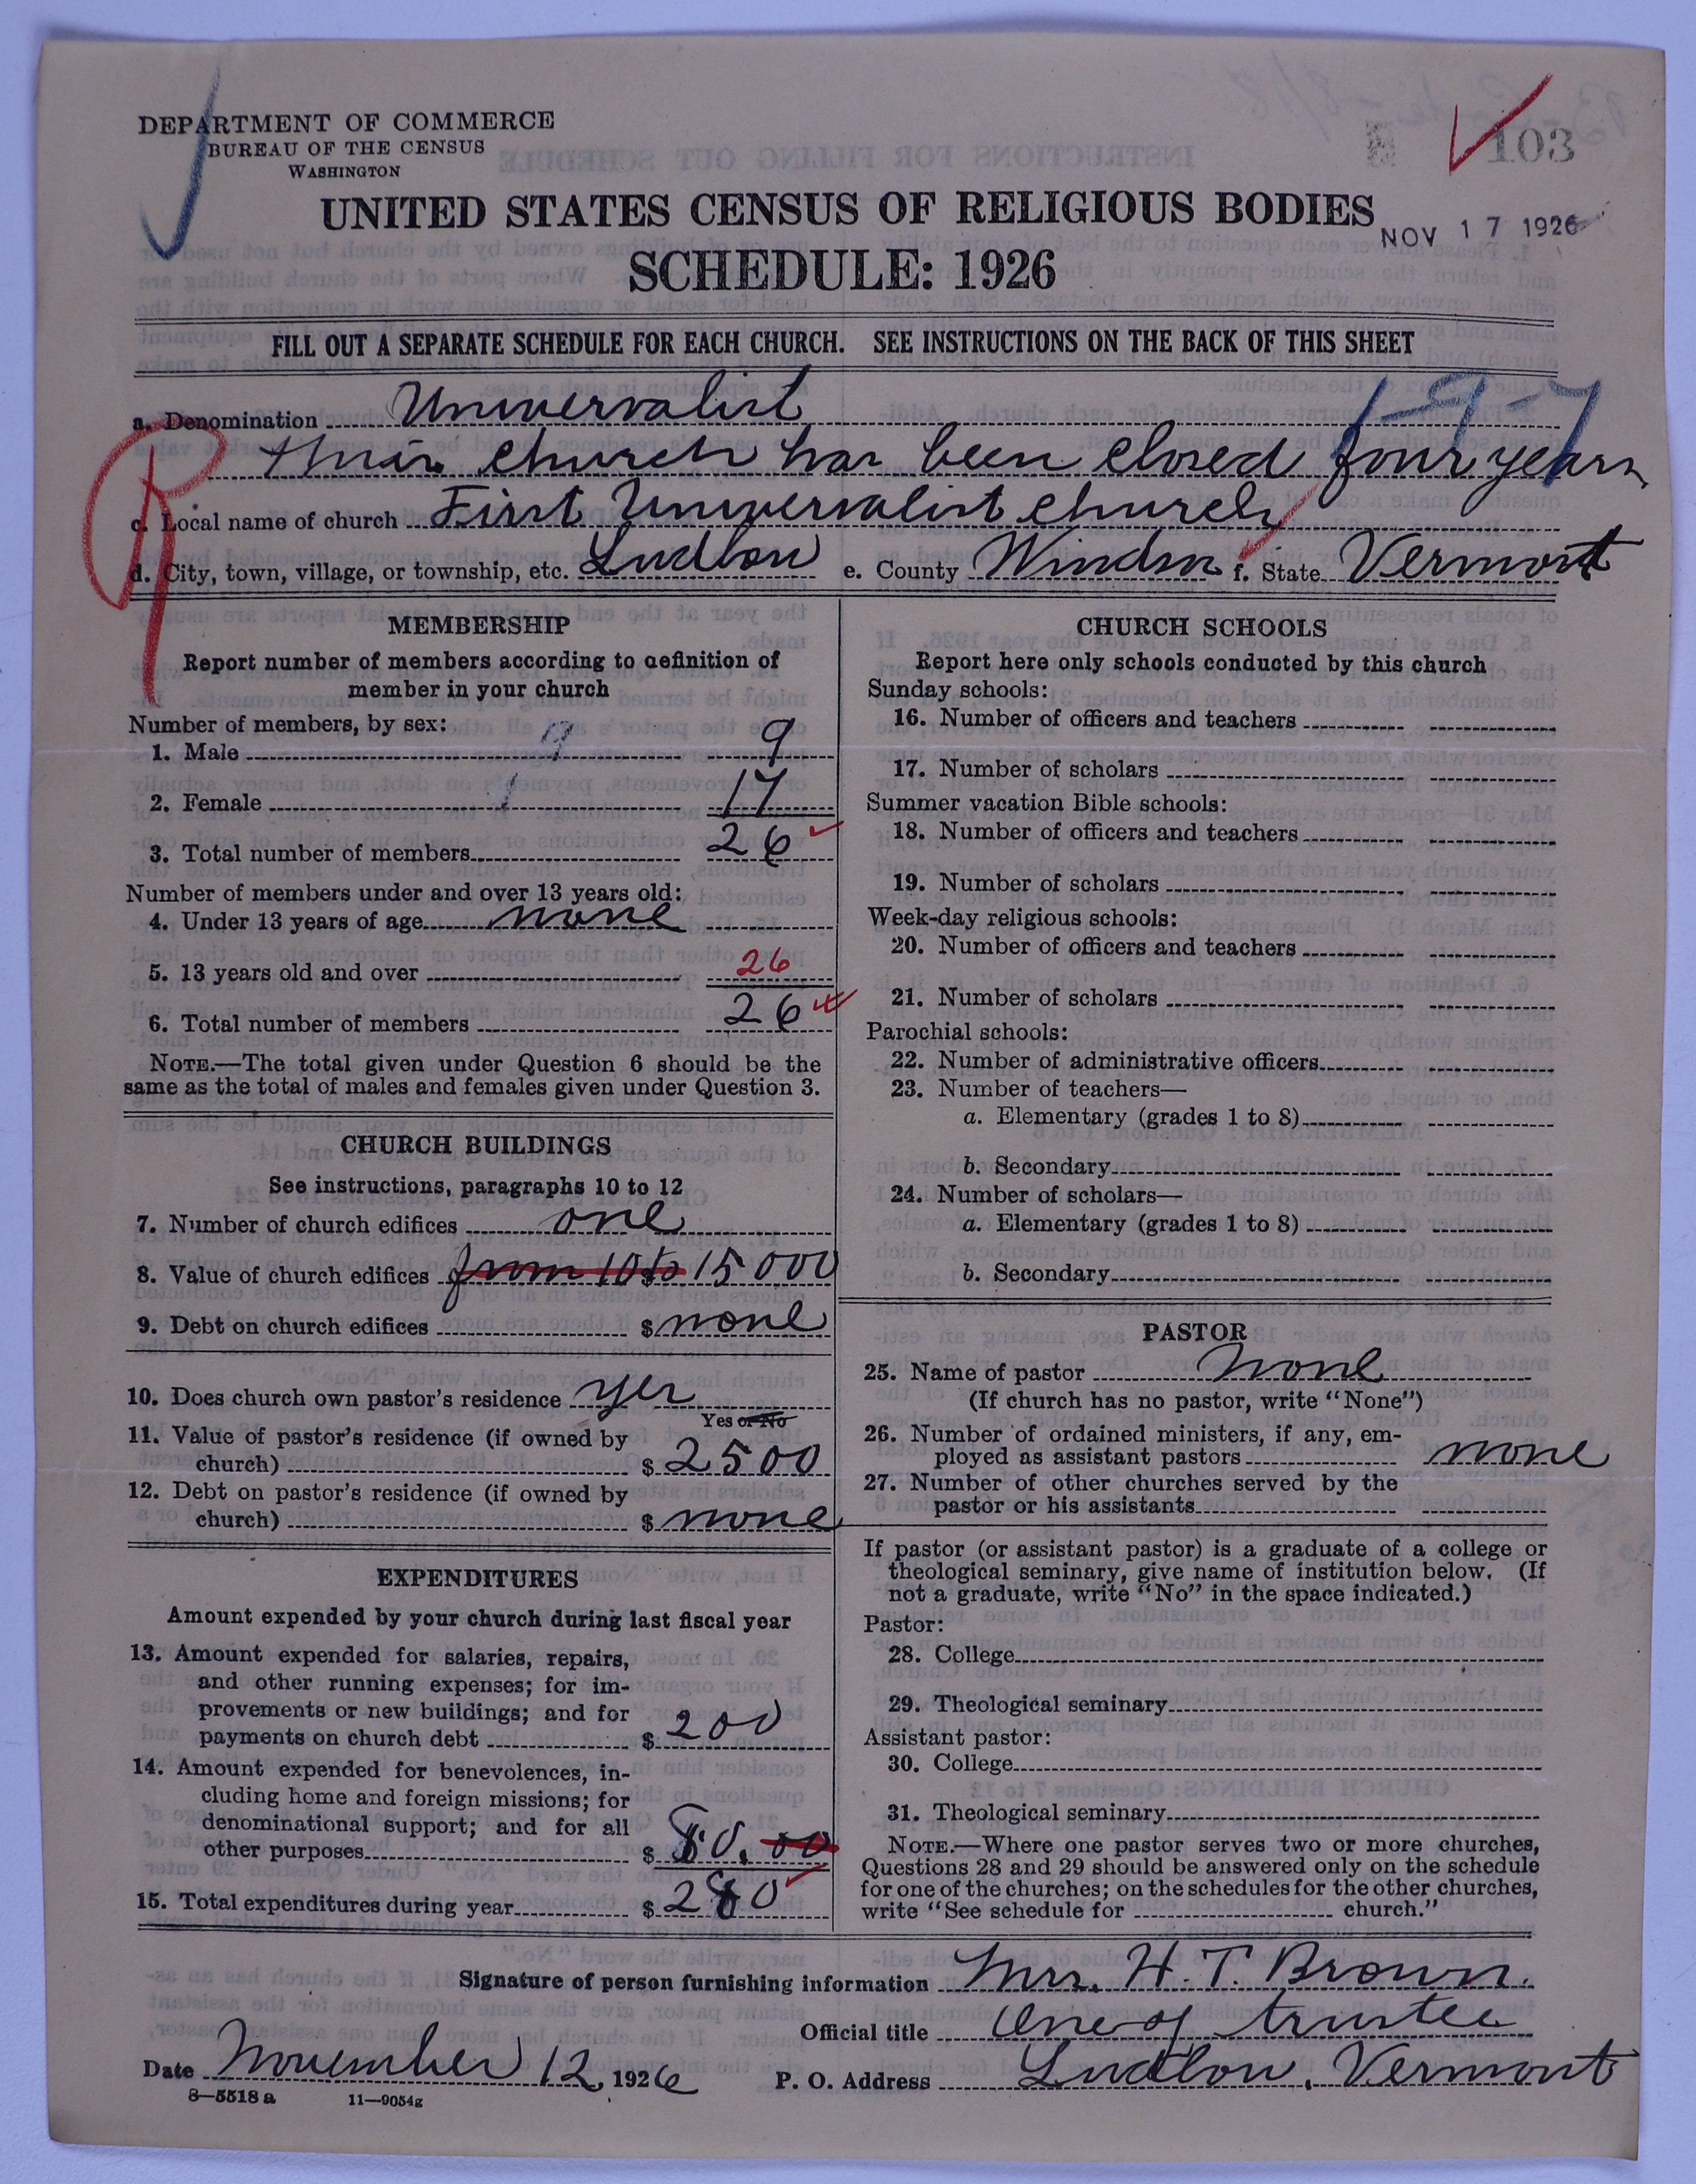 DEPARTMENT OF COMMERCE
BUREAU OF THE CENSUS
WASHINGTON
103
UNITED STATES CENSUS OF RELIGIOUS BODIES
NOV 17 1926
SCHEDULE: 1926
FILL OUT A SEPARATE SCHEDULE FOR EACH CHURCH. SEE INSTRUCTIONS ON THE BACK OF THIS SHEET
1-9-7
a. Denomination Universalist
this church has been closed four years
c. Local name of church First Universalist Church
d. City, town, village, or township, etc. Ludlow e. County Windsor f. State Vermont
MEMBERSHIP
Report number of members according to definition of
member in your church
Number of members, by sex:
1. Male 9
2. Female 17
3. Total number of members 26
Number of members under and over 13 years old:
4. Under 13 years of age none
5. 13 years old and over 26
6. Total number of members 26
NOTE.—The total given under Question 6 should be the
same as the total of males and females given under Question 3.
CHURCH BUILDINGS
See instructions, paragraphs 10 to 12
7. Number of church edifices one
8. Value of church edifices from 10 to 15000
9. Debt on church edifices $ none
10. Does church own pastor's residence yes
Yes or No
11. Value of pastor's residence (if owned by
church) $ 2500
12. Debt on pastor's residence (if owned by
church) $ none
EXPENDITURES
Amount expended by your church during last fiscal year
13. Amount expended for salaries, repairs,
and other running expenses; for im-
provements or new buildings; and for
payments on church debt $ 200
14. Amount expended for benevolences, in-
cluding home and foreign missions; for
denominational support; and for all
other purposes $ 80.00
15. Total expenditures during year $ 280
CHURCH SCHOOLS
Report here only schools conducted by this church
Sunday schools:
16. Number of officers and teachers
17. Number of scholars
Summer vacation Bible schools:
18. Number of officers and teachers
19. Number of scholars
Week-day religious schools:
20. Number of officers and teachers
21. Number of scholars
Parochial schools:
22. Number of administrative officers
23. Number of teachers—
a. Elementary (grades 1 to 8)
b. Secondary
24. Number of scholars—
a. Elementary (grades 1 to 8)
b. Secondary
PASTOR
25. Name of pastor None
(If church has no pastor, write "None")
26. Number of ordained ministers, if any, em-
ployed as assistant pastors none
27. Number of other churches served by the
pastor or his assistants
If pastor (or assistant pastor) is a graduate of a college or
theological seminary, give name of institution below. (If
not a graduate, write "No" in the space indicated.)
Pastor:
28. College
29. Theological seminary
Assistant pastor:
30. College
31. Theological seminary
NOTE.—Where one pastor serves two or more churches,
Questions 28 and 29 should be answered only on the schedule
for one of the churches; on the schedules for the other churches,
write "See schedule for church."
Signature of person furnishing information Mrs. H. T. Brown.
Official title One of trustee
Date November 12, 1926 P. O. Address Ludlow, Vermont
8—5518 a 11—9054g